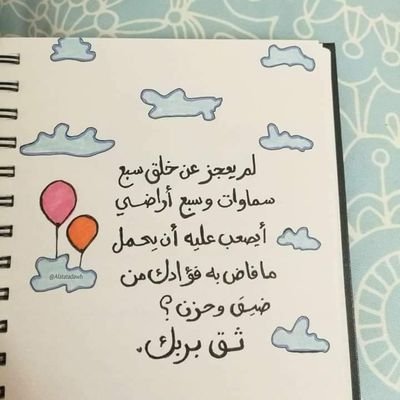 لم يعجز عن خلق سبع
سماوات وسبع أراضي
أيصعب عليه أن يحمل
ما فاض به فؤادك من
ضيق وحزن؟
ثق بربك.